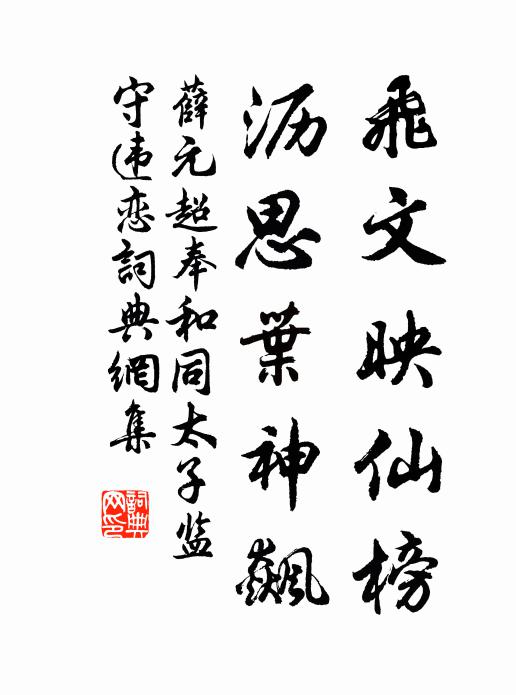 飛文映仙榜
沥思葉神飆
薛元超奉和同太子监
守违恋詞典網集
詞典
网印